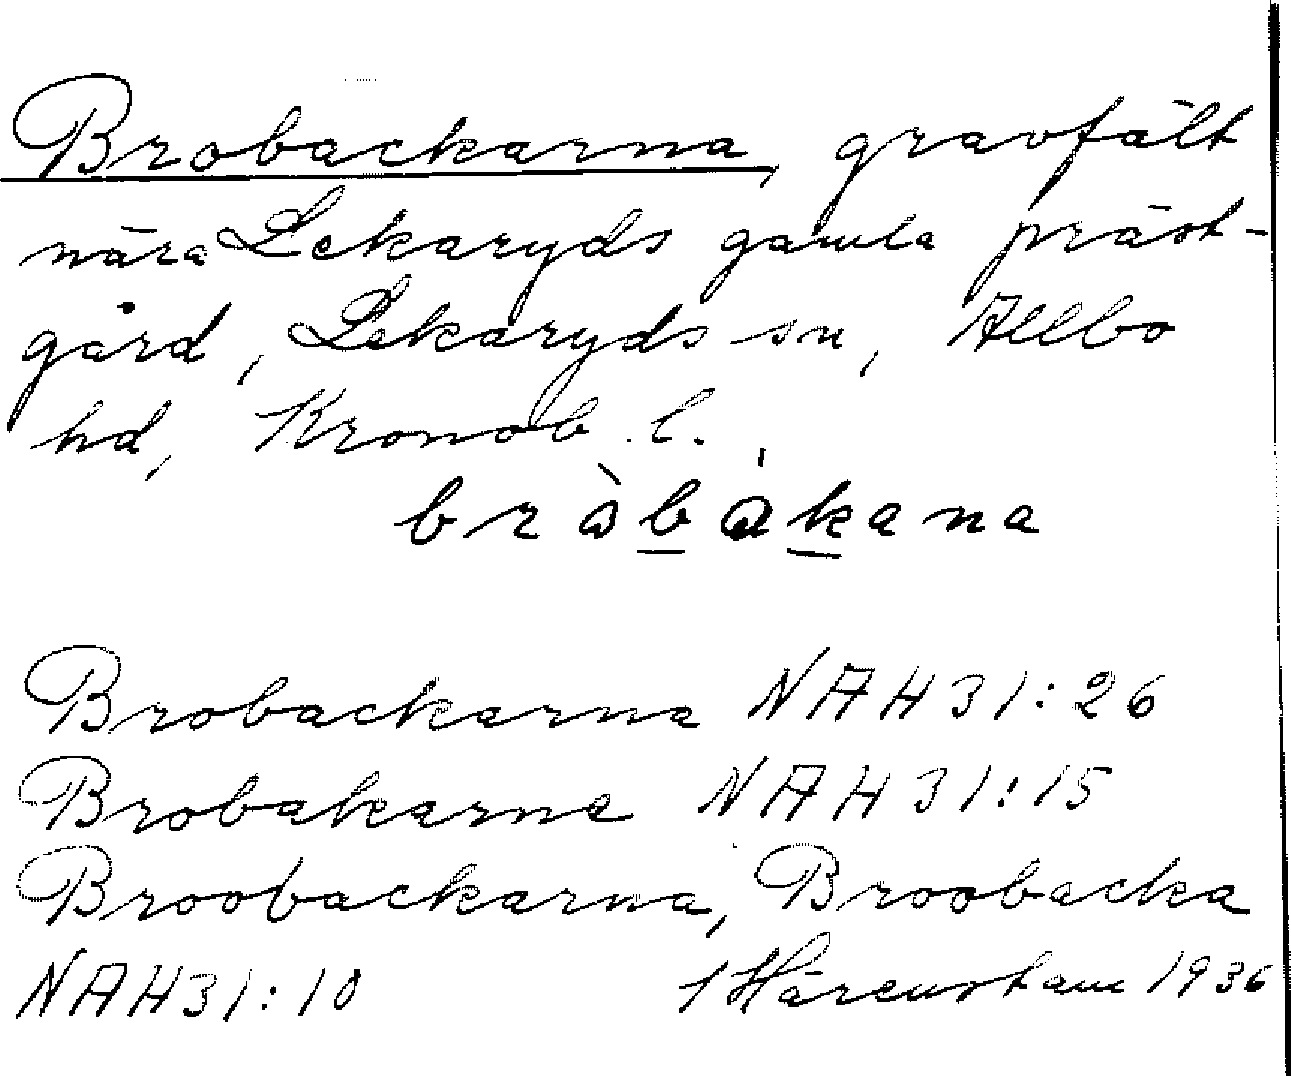 Brobackarna, gravfält
nära Lekaryds gamla präst-
gård, Lekaryds sn, Allbo
hd, Kronob. l.
bròbákana
Brobackarna NAH31:26
Brobakarne NAH31:15
Broobackarna, Broobacka
NAH31:10 Härenstam 1936